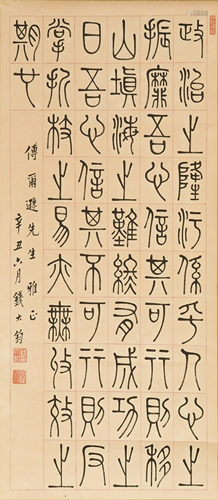 政治之隆汙係乎人心之
振靡吾心信其可行則移
山填海之難終有成功之
日吾心信其不可行則反
掌折枝之易亦無收效之
期也
傅爾遜先生雅正
辛丑六月錢大鈞